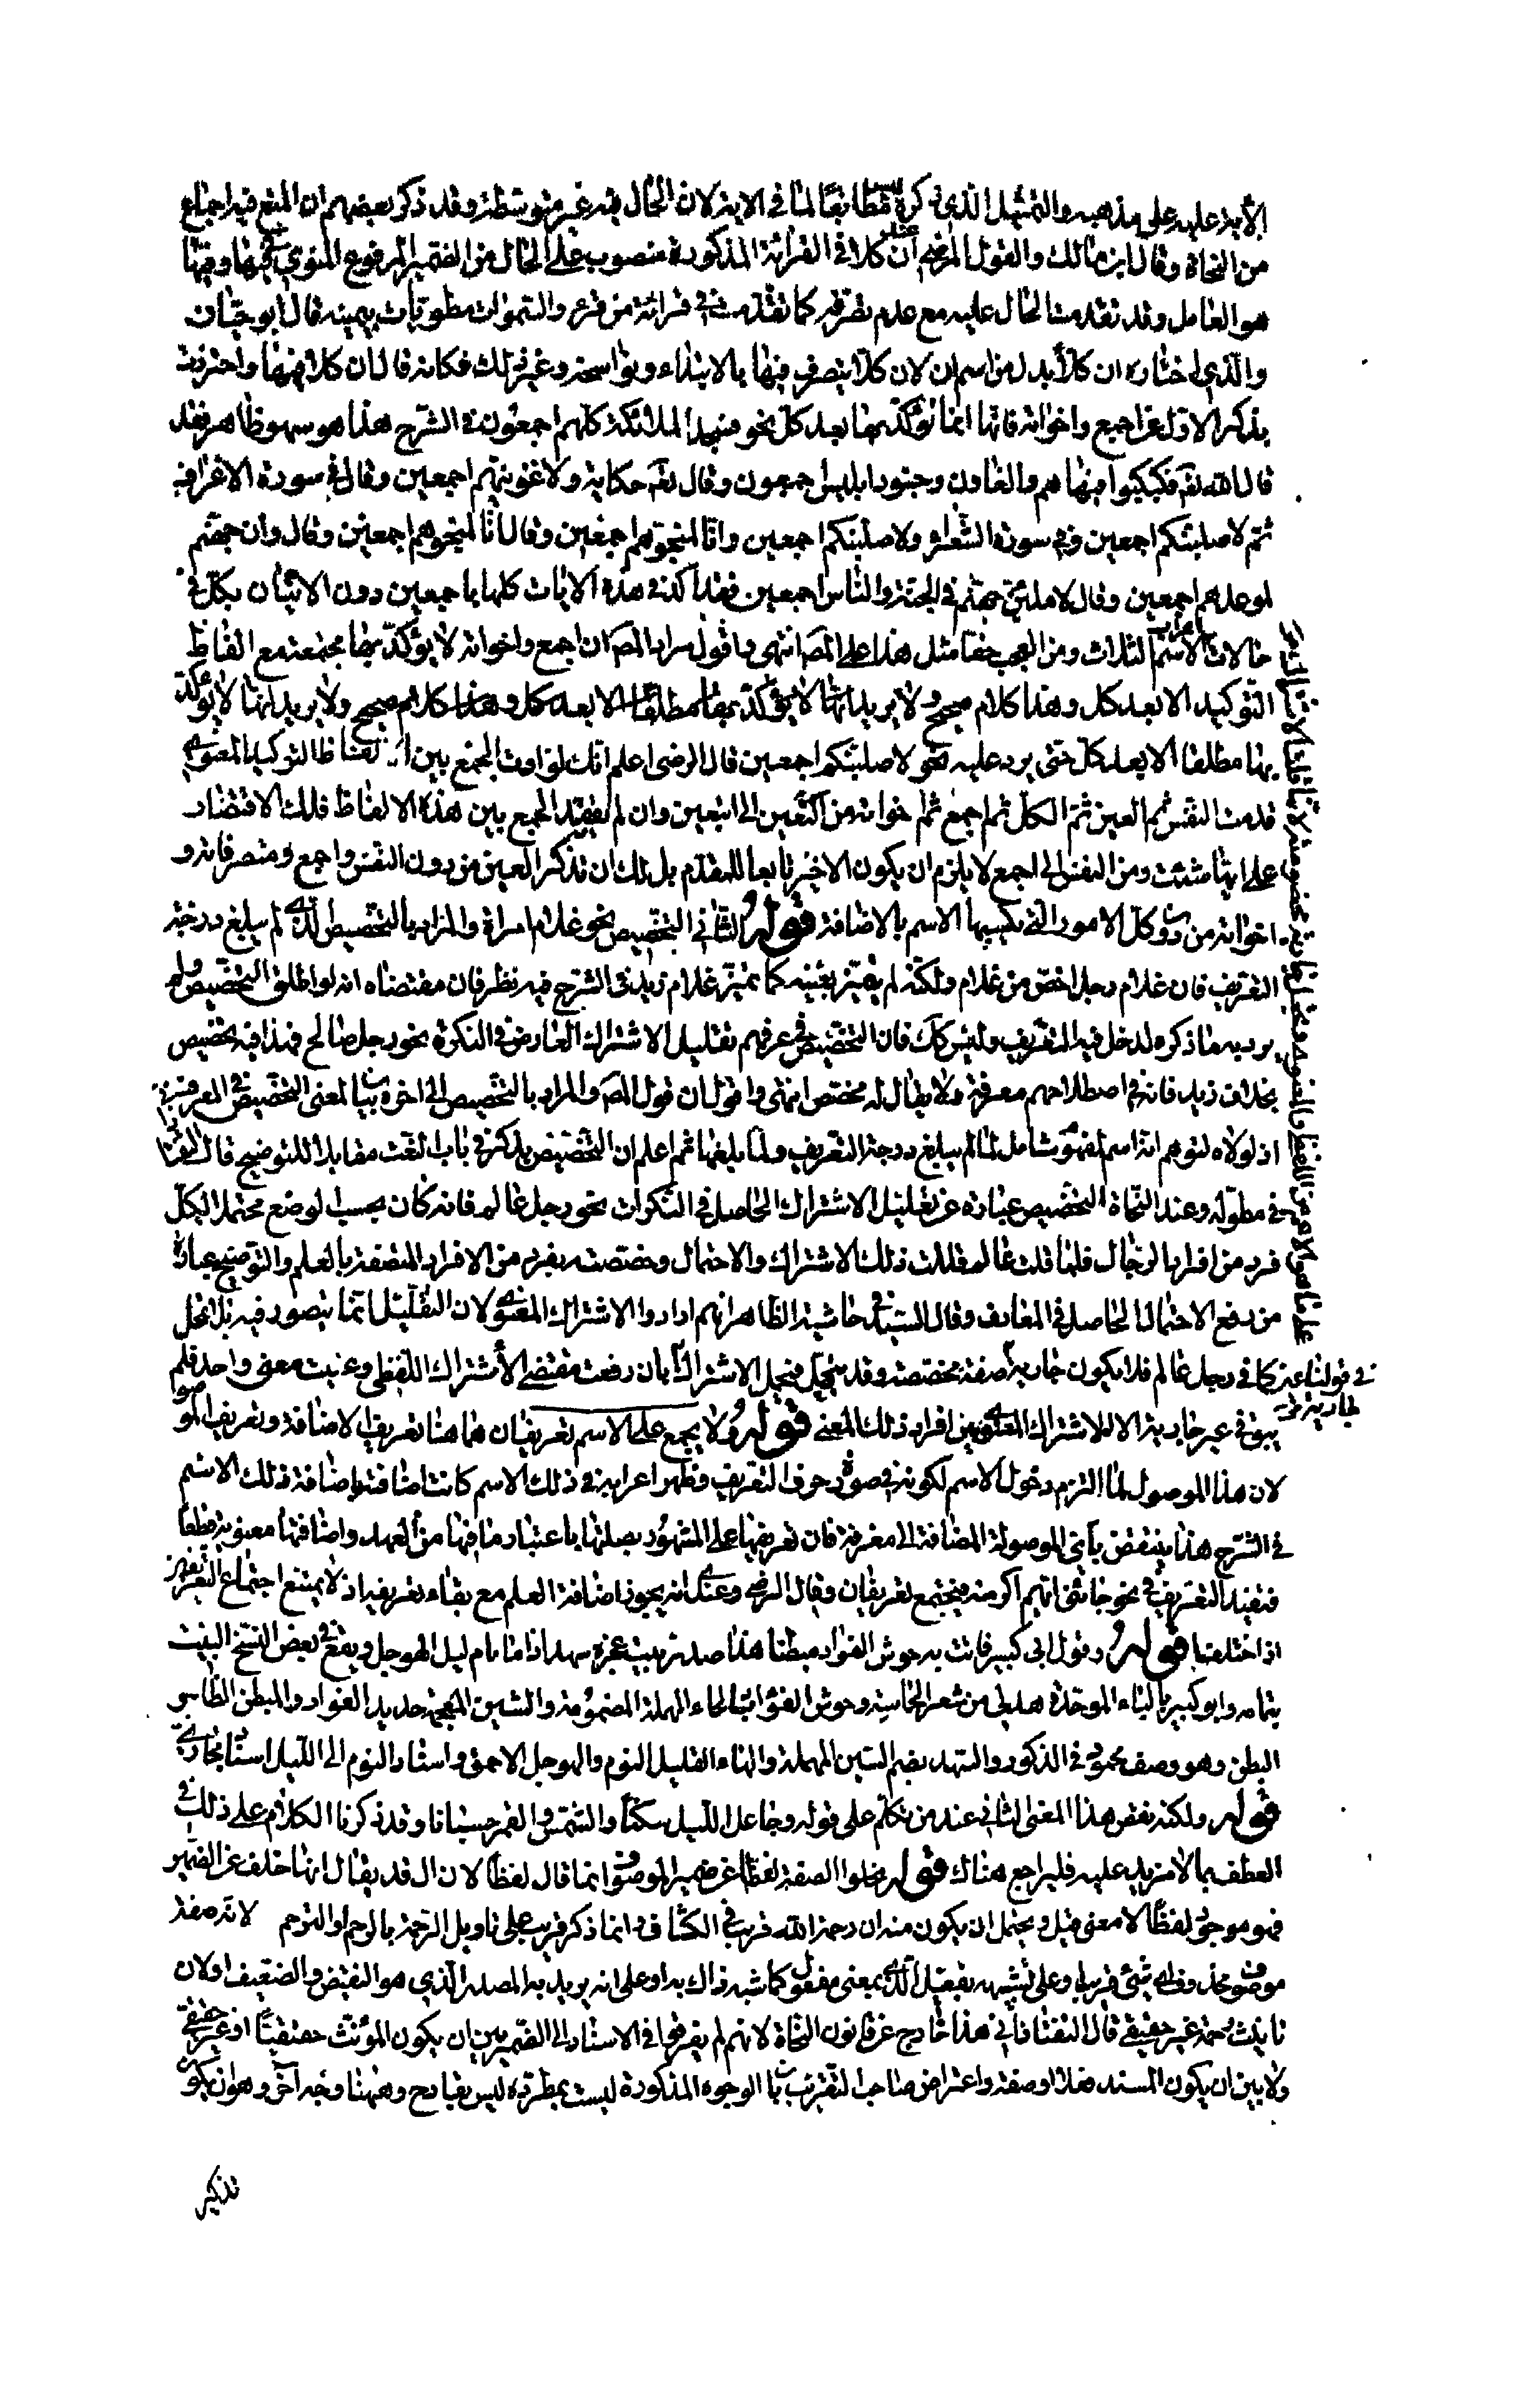 الآية عليه على مذهبه والتمثيل الذي ذكره ليس مطابقا لما في الاية لان الحال فيه غير متوسطة وقد ذكر بعضهم ان المنع فيه اجماع
من النحاة وقال ابن مالك والقول المرضي عندي ان كلا في القرائة المذكورة منصوب على الحال من الضمير المرفوع المنوي في فيها وفيها
هو العامل وقد تقدمت الحال عليه مع عدم تصرفه كما تقدمت في قرائة من قرء والسموات مطويات بيمينه قال ابو حيان
والذي اختاره ان كلا بدل من اسم ان لان كلا يتصرف فيها بالابتداء ونواسخه وغير ذلك فكانه قال ان كلا فيها واحترزت
بذكر الاول عن اجمع واخواته فانها انما تؤكد بها بعد كل نحو فسجد الملائكة كلهم اجمعون في الشرح هذا هو سهو ظاهر فقد
قال الله تعه فكبكبوا فيها هم والغاون وجنود ابليس اجمعون وقال تعه حكاية ولاغوينهم اجمعين وقال في سورة الاعراف
ثم لاصلبنكم اجمعين وفي سورة الشعراء ولاصلبنكم اجمعين وانا لمنجوهم اجمعين وقال انا لمنجوهم اجمعين وقال وان جهنم
لموعدهم اجمعين وقال لاملئن جهنم من الجنة والناس اجمعين فقد اكد في هذه الايات كلها باجمعين دون الاتيان بكل في
حالات اعراب الاسم الثلاث ومن العجب خفا مثل هذا على المص انتهى واقول مراد المص ان اجمع واخواته لا يؤكد بها مجتمعة مع الفاظ
التوكيد الا بعد كل وهذا كلام صحيح ولا يريد انها لا يؤكد بها مطلقا الا بعد كل وهذا كلام صحيح ولا يريد انها لا يؤكد
بها مطلقا الا بعد كل حتى يرد عليه نحو لاصلبنكم اجمعين قال الرضى اعلم انك لو اردت الجمع بين الفاظ التوكيد المعنوي
قدمت النفس ثم العين ثم الكل ثم اجمع ثم اخواته من اكتعين الى ابتعين وان لم تقصد الجمع بين هذه الالفاظ فلك الاقتصار
على ايها شئت ومن النفس الى اجمع لا يلزم ان يكون الاخير تابعا للمقدم بل لك ان تذكر العين من دون النفس واجمع ومتصرفاته و
اخواته من دون كل الامور التي يكتسبها الاسم بالاضافة قوله الثاني التخصيص نحو غلام امراة والمراد بالتخصيص الذي لم يبلغ درجة
التعريف فان غلام رجل اخص من غلام ولكنه لم يتميز بعينه كما يتميز غلام زيد في الشرح فيه نظر فان مقتضاه انه لو اطلق التخصيص ولم
يرد به ما ذكره لدخل فيه التعريف وليس كك فان التخصيص في عرفهم تقليل الاشتراك العارض في النكرة نحو رجل صالح فهذا فيه تخصيص
بخلاف زيد فانه في اصطلاحهم معرفة ولا يقال له مختص انتهى واقول ان قول المص والمراد بالتخصيص الى اخره بيان لمعنى التخصيص في
اذ لولاه لتوهم انه اسم لمفهوم شامل لما لم يبلغ درجة التعريف ولما يبلغها ثم اعلم ان التخصيص يذكر في باب النعت مقابلا للتوضيح قال التفتا
في مطوله وعند النحاة التخصيص عبارة عن تقليل الاشتراك الحاصل في النكرات نحو رجل عالم فانه كان بحسب الوضع محتملا لكل
فرد من افراد الرجال فلما قلت عالم قللت ذلك الاشتراك والاحتمال وخصصته بفرد من الافراد المتصفة بالعلم والتوضيح عبارة
من رفع الاحتمال الحاصل في المعارف وقال السيد في حاشية الظاهر انهم ارادوا الاشتراك المعنوي لان التقليل انما يتصور فيه بلا تمحل
كما في رجل عالم فلا يكون جارية صفة مخصصة وقد يتمحل فيجعل الاشتراك بان رفعت مقتضى الاشتراك اللفظي وعنيت معنى واحد فلم
في قولنا عين جارية
يبق في عين جارية الا الاشتراك المعنوي بين افراد ذلك المعنى قوله ولا يجمع على الاسم تعريفان هما هنا تعريف الاضافة وتعريف الموصول
لان هذا الموصول لما التزم دخول الاسم لكونه في صورة حرف التعريف وظهر اعرابه في ذلك الاسم كانت اضافته اضافة ذلك الاسم
في الشرح هذا ينتقض باي الموصولة المضافة الى معرفة فان تعريفها على المشهور بصلتها باعتبار ما فيها من العهد واضافتها معنوية قطعا
فتفيد التعريف في نحو جائني ايهم اكرمته فيجتمع تعريفان وقال الرضي وعندي انه يجوز اضافة العلم مع بقاء تعريفه اذ لا يمتنع اجتماع التعريفين
اذا اختلفا قوله وقول ابي كبير فاتت به حوش الفؤاد مبطنا هذا صدر بيت عجزه سهدا اذا ما نام ليل الهوجل ويقع في بعض النسخ البيت
بتمامه وابو كبير بالباء الموحدة هذلي من شعراء الحماسة وحوش الفؤاد بالحاء المهملة المضمومة والشين المعجمة حديد الفؤاد والمبطن الضامر
البطن وهو وصف محمود في الذكور والسهد بضم السين المهملة والهاء القليل النوم والهوجل الاحمق واسناد النوم الى الليل اسناد مجازي
قوله ولكنه نقض هذا المعنى الثاني عند من تكلم على قوله وجاعل الليل سكنا والشمس والقمر حسبانا وقد ذكرنا الكلام على ذلك في
العطف بما لا مزيد عليه فليراجع هناك قوله لخلو الصفة لفظا عن ضمير الموصوف انما قال لفظا لان ال قد يقال انها خلف عن الضمير
فهو موجود لفظا لا معنى قيل ويحتمل ان يكون منه ان رحمة الله قريب في الكشاف وانما ذكر قريب على تاويل الرحمة بالرحم او الترحم لانه صفة
موصوف محذوف اي شئ قريب او على تشبيهه بفعيل الذي بمعنى مفعول كما شبه ذاك به او على انه يريد به المصدر الذي هو النقيض والضغيف او لان
تانيث الرحمة غير حقيقي قال التفتازاني هذا خارج عن قانون النحاة لانهم لم يفرقوا في الاسناد الى الضمير بين ان يكون المؤنث حقيقيا او غير حقيقي
ولا بين ان يكون المسند فعلا او صفة واعتراض صاحب التقريب بان الوجوه المذكورة ليست بمطردة ليس بقادح وههنا وجه آخر وهو ان يكون
تذكير